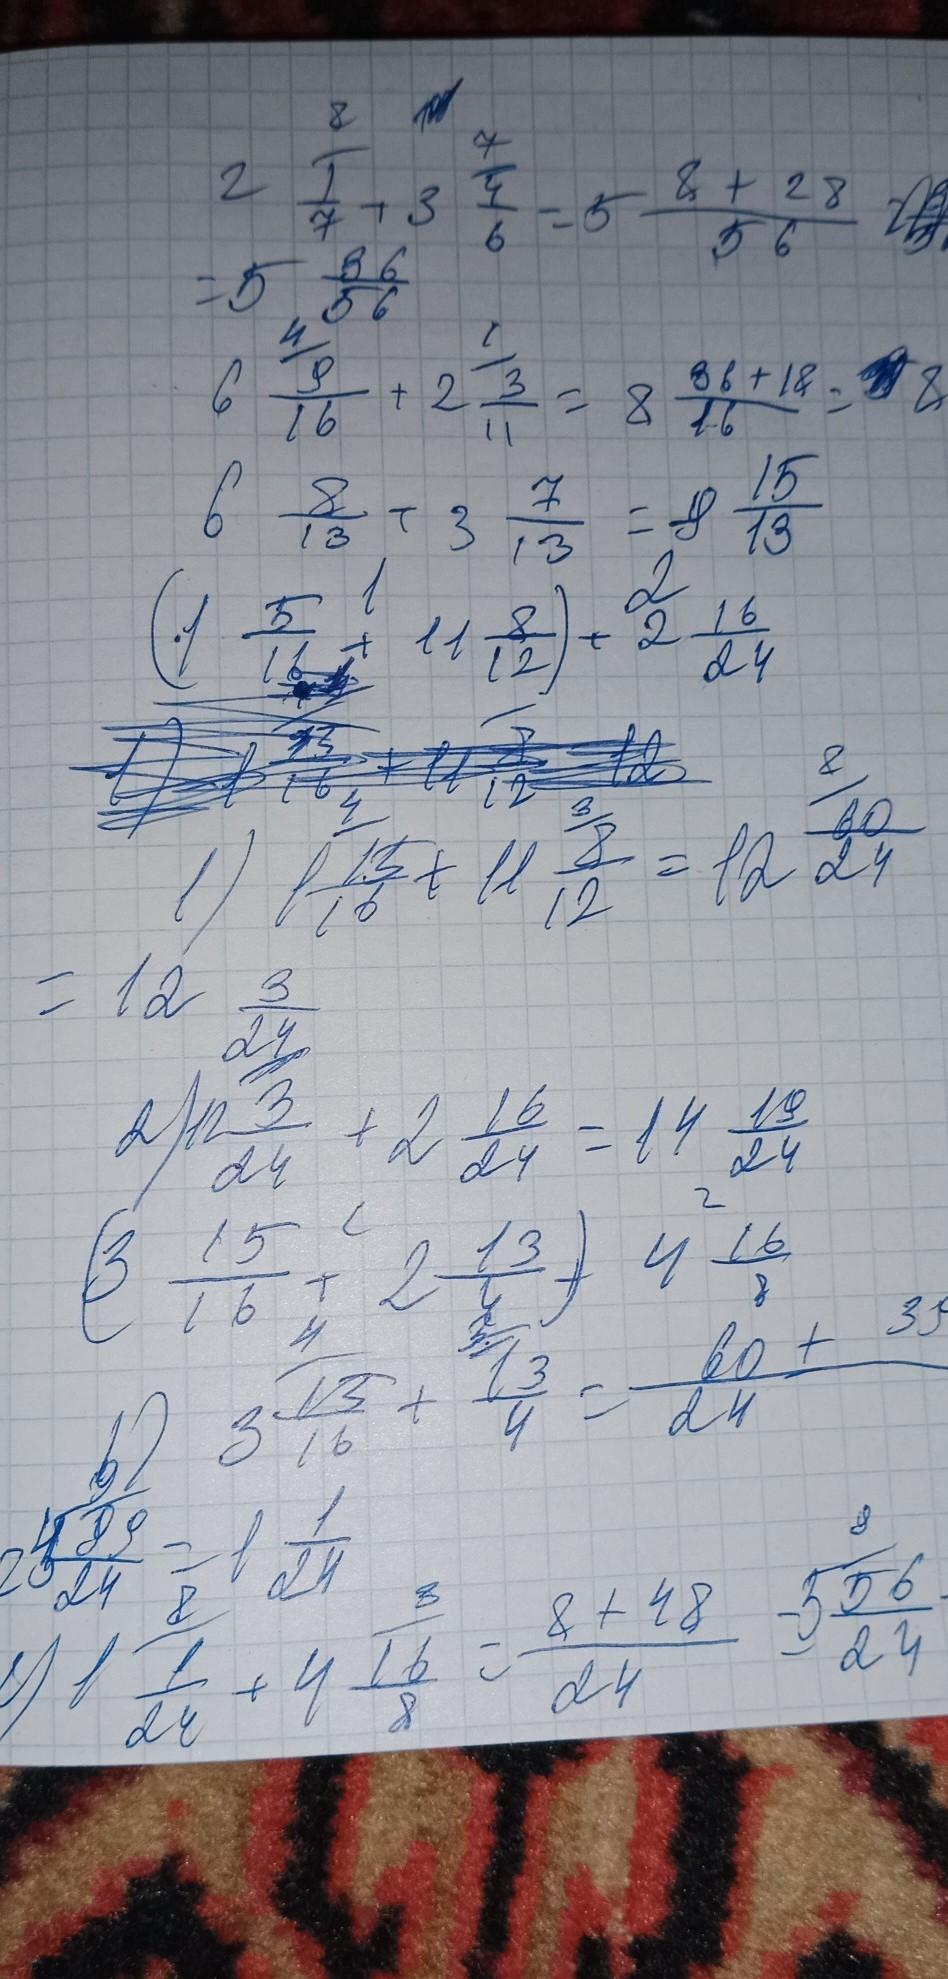 2 1/7 (8) + 3 4/6 (7) = 5 (8 + 28)/56
= 5 36/56
6 9/16 (4) + 2 3/11 (1) = 8 (36 + 18)/16 = 8
6 8/13 + 3 7/13 = 9 15/13
(1 5/16 + (1) 11 8/12) + (2) 2 16/24
1) 1 15/16 (4) + 11 8/12 (3) = 12 60/24 (8)
= 12 3/24
2) 12 3/24 + 2 16/24 = 14 19/24
(3 15/16 + (1) 2 13/4) + (2) 4 16/8
1) 3 15/16 (4) + 13/4 = (60 + 39)/24
/24 = 1 1/24
2) 1 1/24 (8) + 4 16/8 (3) = (8 + 48)/24 = 5 56/24 (8)